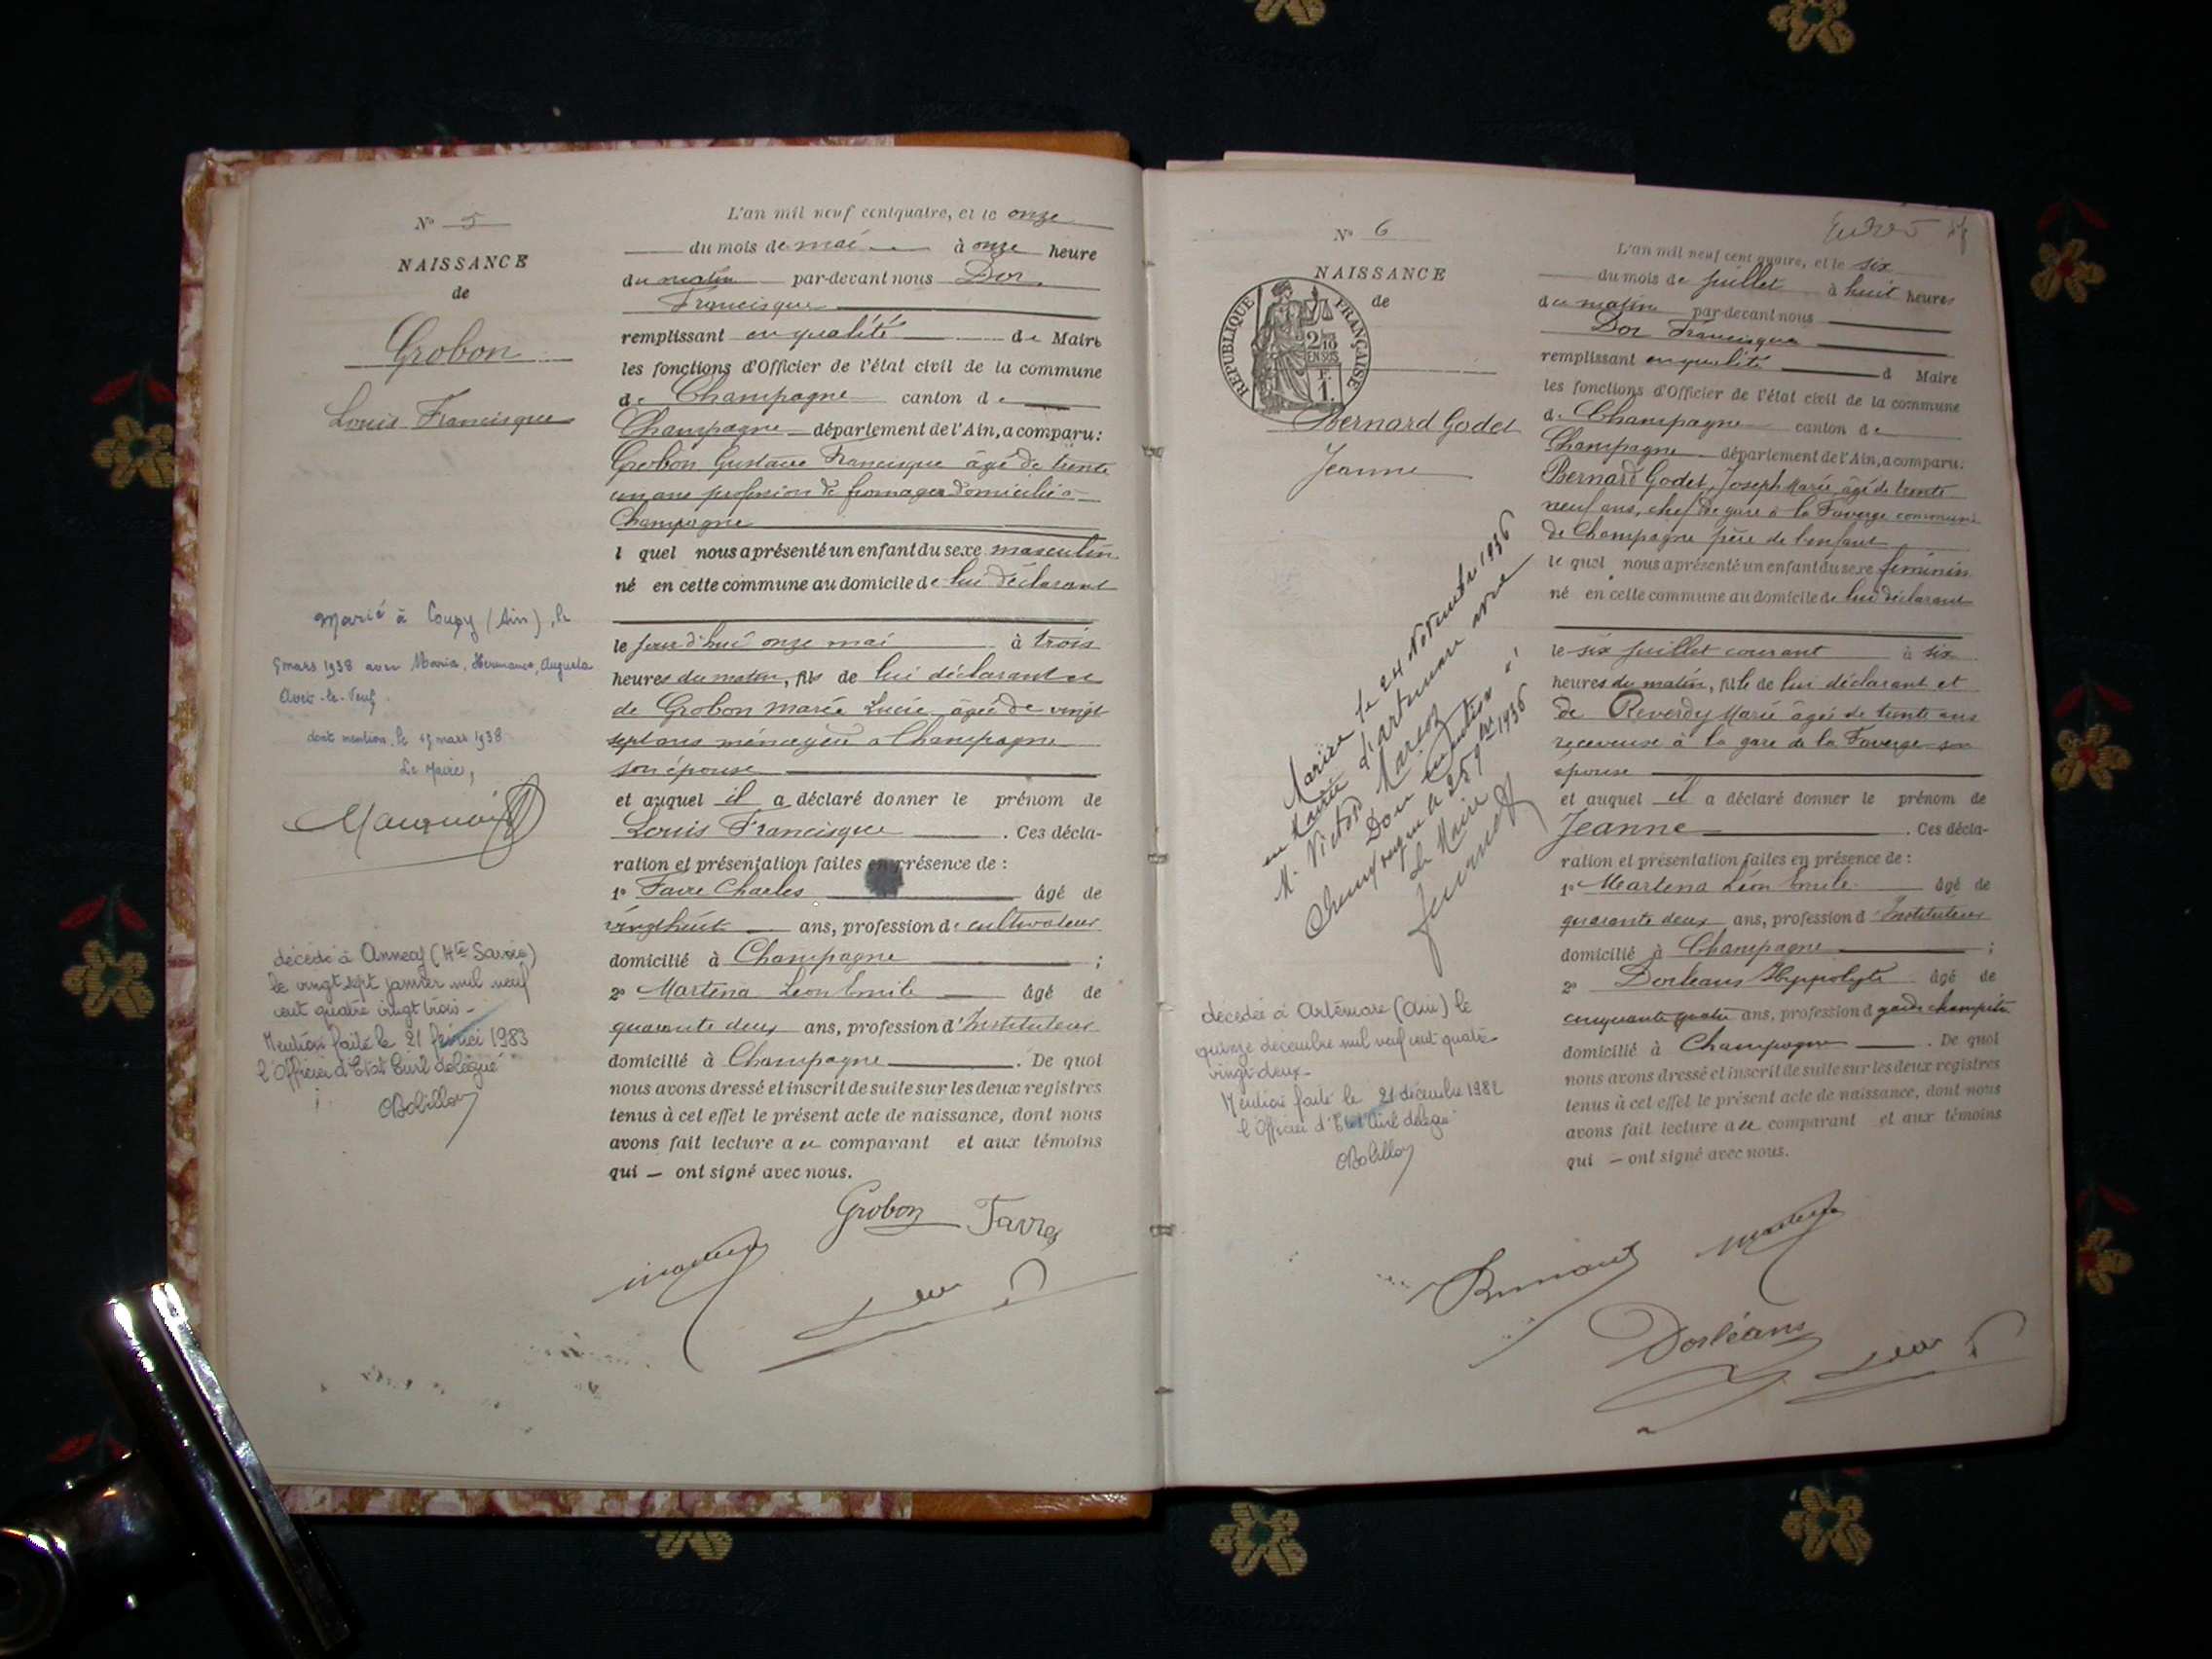 N° 5
NAISSANCE
de
Grobon
Louis Francisque
Marié à Coupy (Ain), le
mars 1938 avec Maria, Hermance, Augusta
dont mention, le 15 mars 1938
Le Maire,
décédé à Annecy (Hte Savoie)
le vingt sept janvier mil neuf
cent quatre vingt trois -
Mention faite le 21 février 1983
l'Officier d'Etat Civil délégué
L'an mil neuf cent quatre, et le onze
du mois de mai à onze heure
du matin par-devant nous Dor
Francisque
remplissant en qualité de Maire
les fonctions d'Officier de l'état civil de la commune
de Champagne canton de
Champagne département de l'Ain, a comparu:
Grobon Gustave Francisque âgé de trente
un ans profession de fromager domicilié à
Champagne
l quel nous a présenté un enfant du sexe masculin
né en cette commune au domicile de lui déclarant
le jourd'hui onze mai à trois
heures du matin, fils de lui déclarant et
de Grobon Marie Lucie âgée de vingt
sept ans ménagère à Champagne
son épouse
et auquel il a déclaré donner le prénom de
Louis Francisque. Ces décla-
ration et présentation faites en présence de :
1° Favre Charles âgé de
vingt huit ans, profession de cultivateur
domicilié à Champagne ;
2° Martena Léon Emile âgé de
quarante deux ans, profession d'Instituteur
domicilié à Champagne. De quoi
nous avons dressé et inscrit de suite sur les deux registres
tenus à cet effet le présent acte de naissance, dont nous
avons fait lecture au comparant et aux témoins
qui — ont signé avec nous.
Grobon Favre
N° 6
NAISSANCE
de
REPUBLIQUE FRANÇAISE
2/10
EN SUS
1.
Bernard Godet
Jeanne
Mariée le 24 Novembre 1936
en Mairie d'Artemare avec
M. Victor
Dont mention
Champagne le 25 9bre 1936
Le Maire
décédée à Artemare (Ain) le
quinze décembre mil neuf cent quatre
vingt-deux-
Mention faite le 21 décembre 1982
l'Officier d'Etat Civil délégué
L'an mil neuf cent quatre, et le six
du mois de juillet à huit heures
du matin par-devant nous
Dor Francisque
remplissant en qualité d Maire
les fonctions d'Officier de l'état civil de la commune
de Champagne canton de
Champagne département de l'Ain, a comparu:
Bernard Godet, Joseph Marie âgé de trente
neuf ans, chef de gare à la Faverge commune
de Champagne père de l'enfant
le quel nous a présenté un enfant du sexe féminin
né en cette commune au domicile de lui déclarant
le six juillet courant à six
heures du matin, fille de lui déclarant et
de Reverdy Marie âgée de trente ans
receveuse à la gare de la Faverge son
épouse
et auquel il a déclaré donner le prénom de
Jeanne. Ces décla-
ration et présentation faites en présence de :
1° Martena Léon Emile âgé de
quarante deux ans, profession d'Instituteur
domicilié à Champagne ;
2° Dorleans Hyppolyte âgé de
cinquante quatre ans, profession d garde champêtre
domicilié à Champagne. De quoi
nous avons dressé et inscrit de suite sur les deux registres
tenus à cet effet le présent acte de naissance, dont nous
avons fait lecture au comparant et aux témoins
qui — ont signé avec nous.
Dorléans